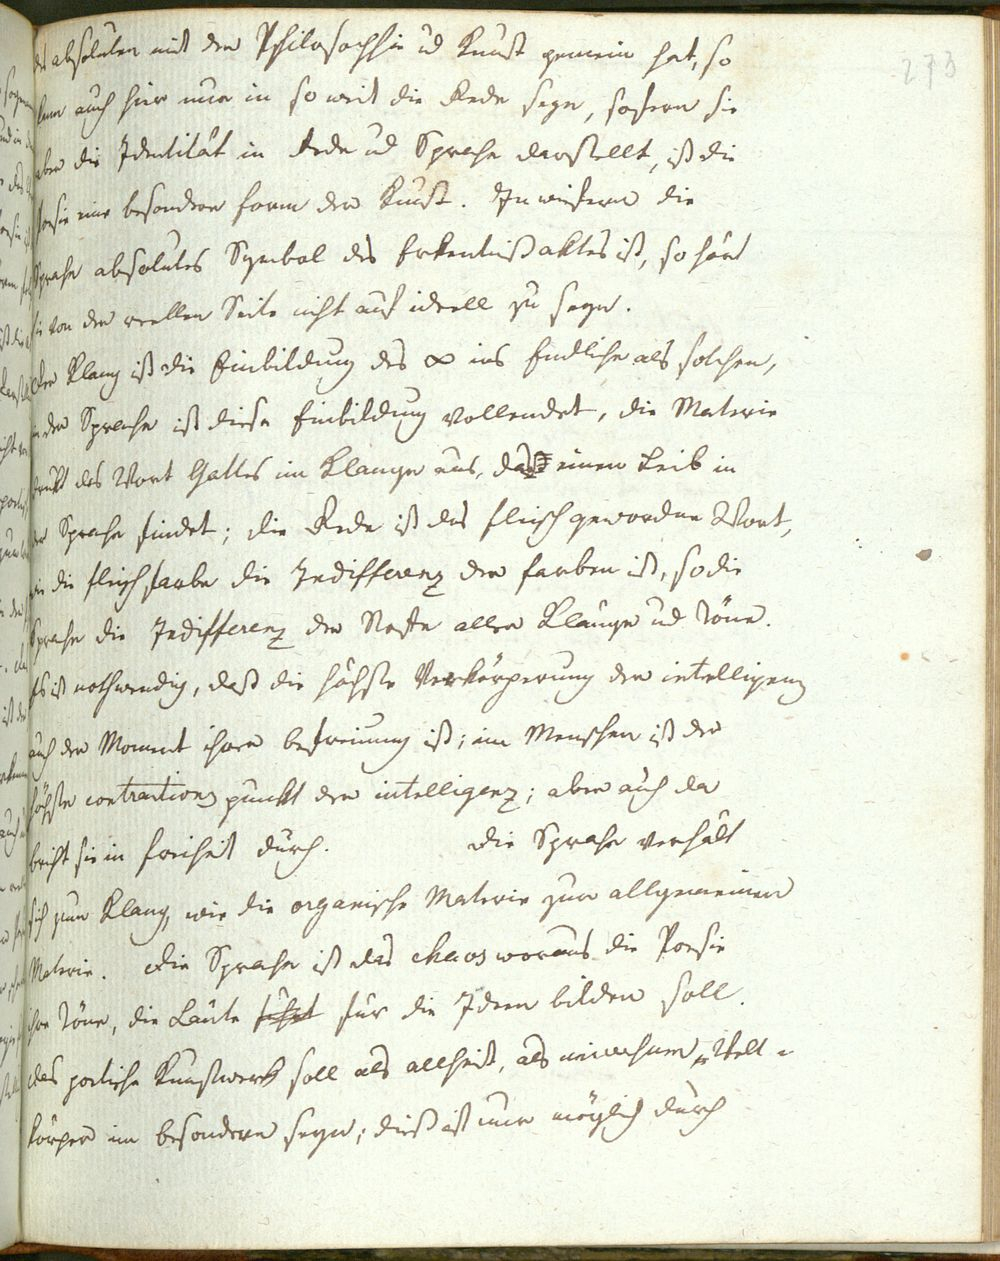 273
des absoluten mit der Philosophie ud Kunst gemein hat, so
kann auch hier nur in so weit die Rede seyn, sofern sie
aber die Identität in Rede ud Sprache darstellt, ist die
Poesie eine besondere Form der Kunst. In wiefern die
Sprache absolutes Symbol des Erkentnißaktes ist, so hört
sie von der reellen Seite nicht auf ideell zu seyn.
Der Klang ist die Einbildung des ∞ ins Endliche als solchen,
in der Sprache ist diese Einbildung vollendet, die Materie
drükt das Wort Gottes im Klange aus, das einen Leib in
der Sprache findet; die Rede ist das fleischgewordne Wort,
wie die Fleischfarbe die Indifferenz der Farben ist, so die
Sprache die Indifferenz der Stoffe aller Klänge ud Töne.
Es ist nothwendig, daß die höchste Verkörperung der intelligenz
auch der Moment ihrer befreiung ist; im Menschen ist der
höchste contractions punkt der intelligenz; aber auch da
bricht sie in Freiheit durch. Die Sprache verhält
sich zum Klang, wie die organische Materie zur allgemeinen
Materie. Die Sprache ist das chaos woraus die Poesie
ihre Töne, die Laute für die Ideen bilden soll.
Das poetische Kunstwerk soll als allheit, als universum, Welt-
körper im besondern seyn; dieß ist nur möglich durch